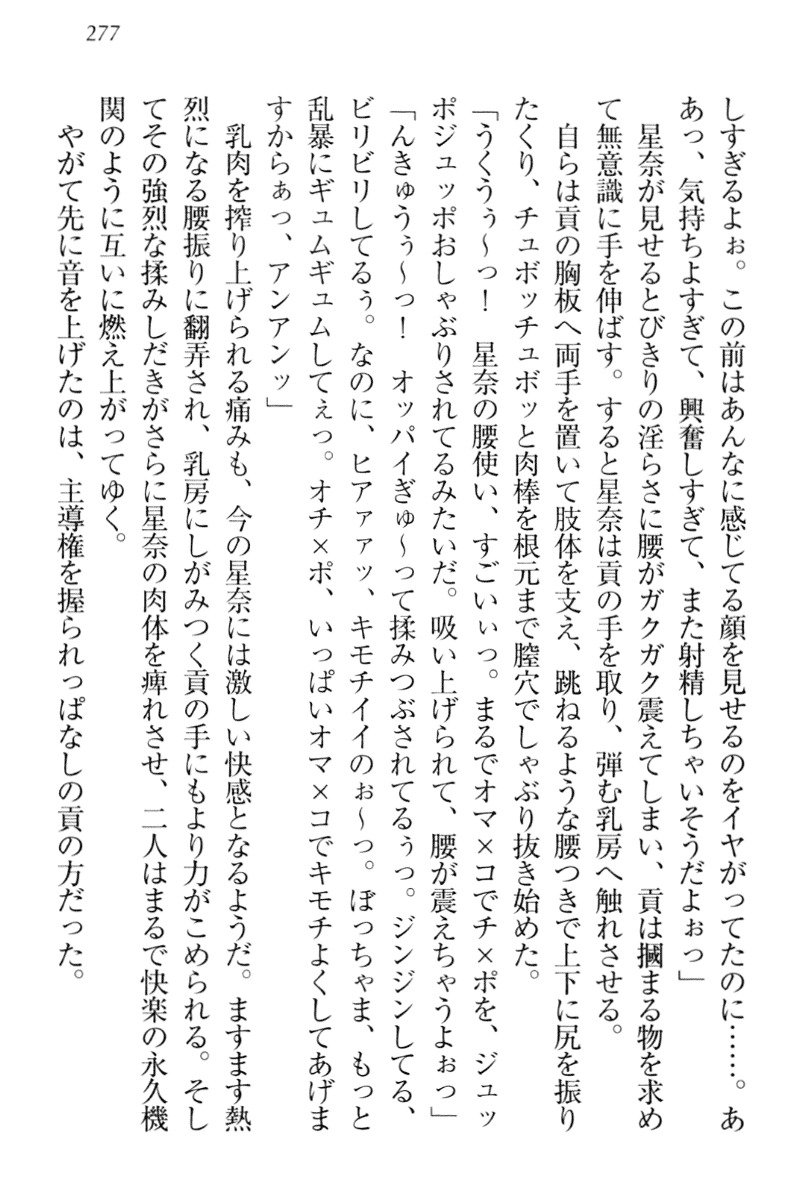 277
しすぎるよぉ。この前はあんなに感じてる顔を見せるのをイヤがってたのに……。あ
あっ、気持ちよすぎて、興奮しすぎて、また射精しちゃいそうだよぉっ」
　星奈が見せるとびきりの淫らさに腰がガクガク震えてしまい、貢は摑まる物を求め
て無意識に手を伸ばす。すると星奈は貢の手を取り、弾む乳房へ触れさせる。
　自らは貢の胸板へ両手を置いて肢体を支え、跳ねるような腰つきで上下に尻を振り
たくり、チュボッチュボッと肉棒を根元まで膣穴でしゃぶり抜き始めた。
「うくうぅ〜っ！　星奈の腰使い、すごいぃっ。まるでオマ×コでチ×ポを、ジュッ
ポジュッポおしゃぶりされてるみたいだ。吸い上げられて、腰が震えちゃうよぉっ」
「んきゅうぅ〜っ！　オッパイぎゅ〜って揉みつぶされてるぅっ。ジンジンしてる、
ビリビリしてるぅ。なのに、ヒアァァッ、キモチイイのぉ〜っ。ぼっちゃま、もっと
乱暴にギュムギュムしてぇっ。オチ×ポ、いっぱいオマ×コでキモチよくしてあげま
すからぁっ、アンアンッ」
　乳肉を搾り上げられる痛みも、今の星奈には激しい快感となるようだ。ますます熱
烈になる腰振りに翻弄され、乳房にしがみつく貢の手にもより力がこめられる。そし
てその強烈な揉みしだきがさらに星奈の肉体を痺れさせ、二人はまるで快楽の永久機
関のように互いに燃え上がってゆく。
　やがて先に音を上げたのは、主導権を握られっぱなしの貢の方だった。